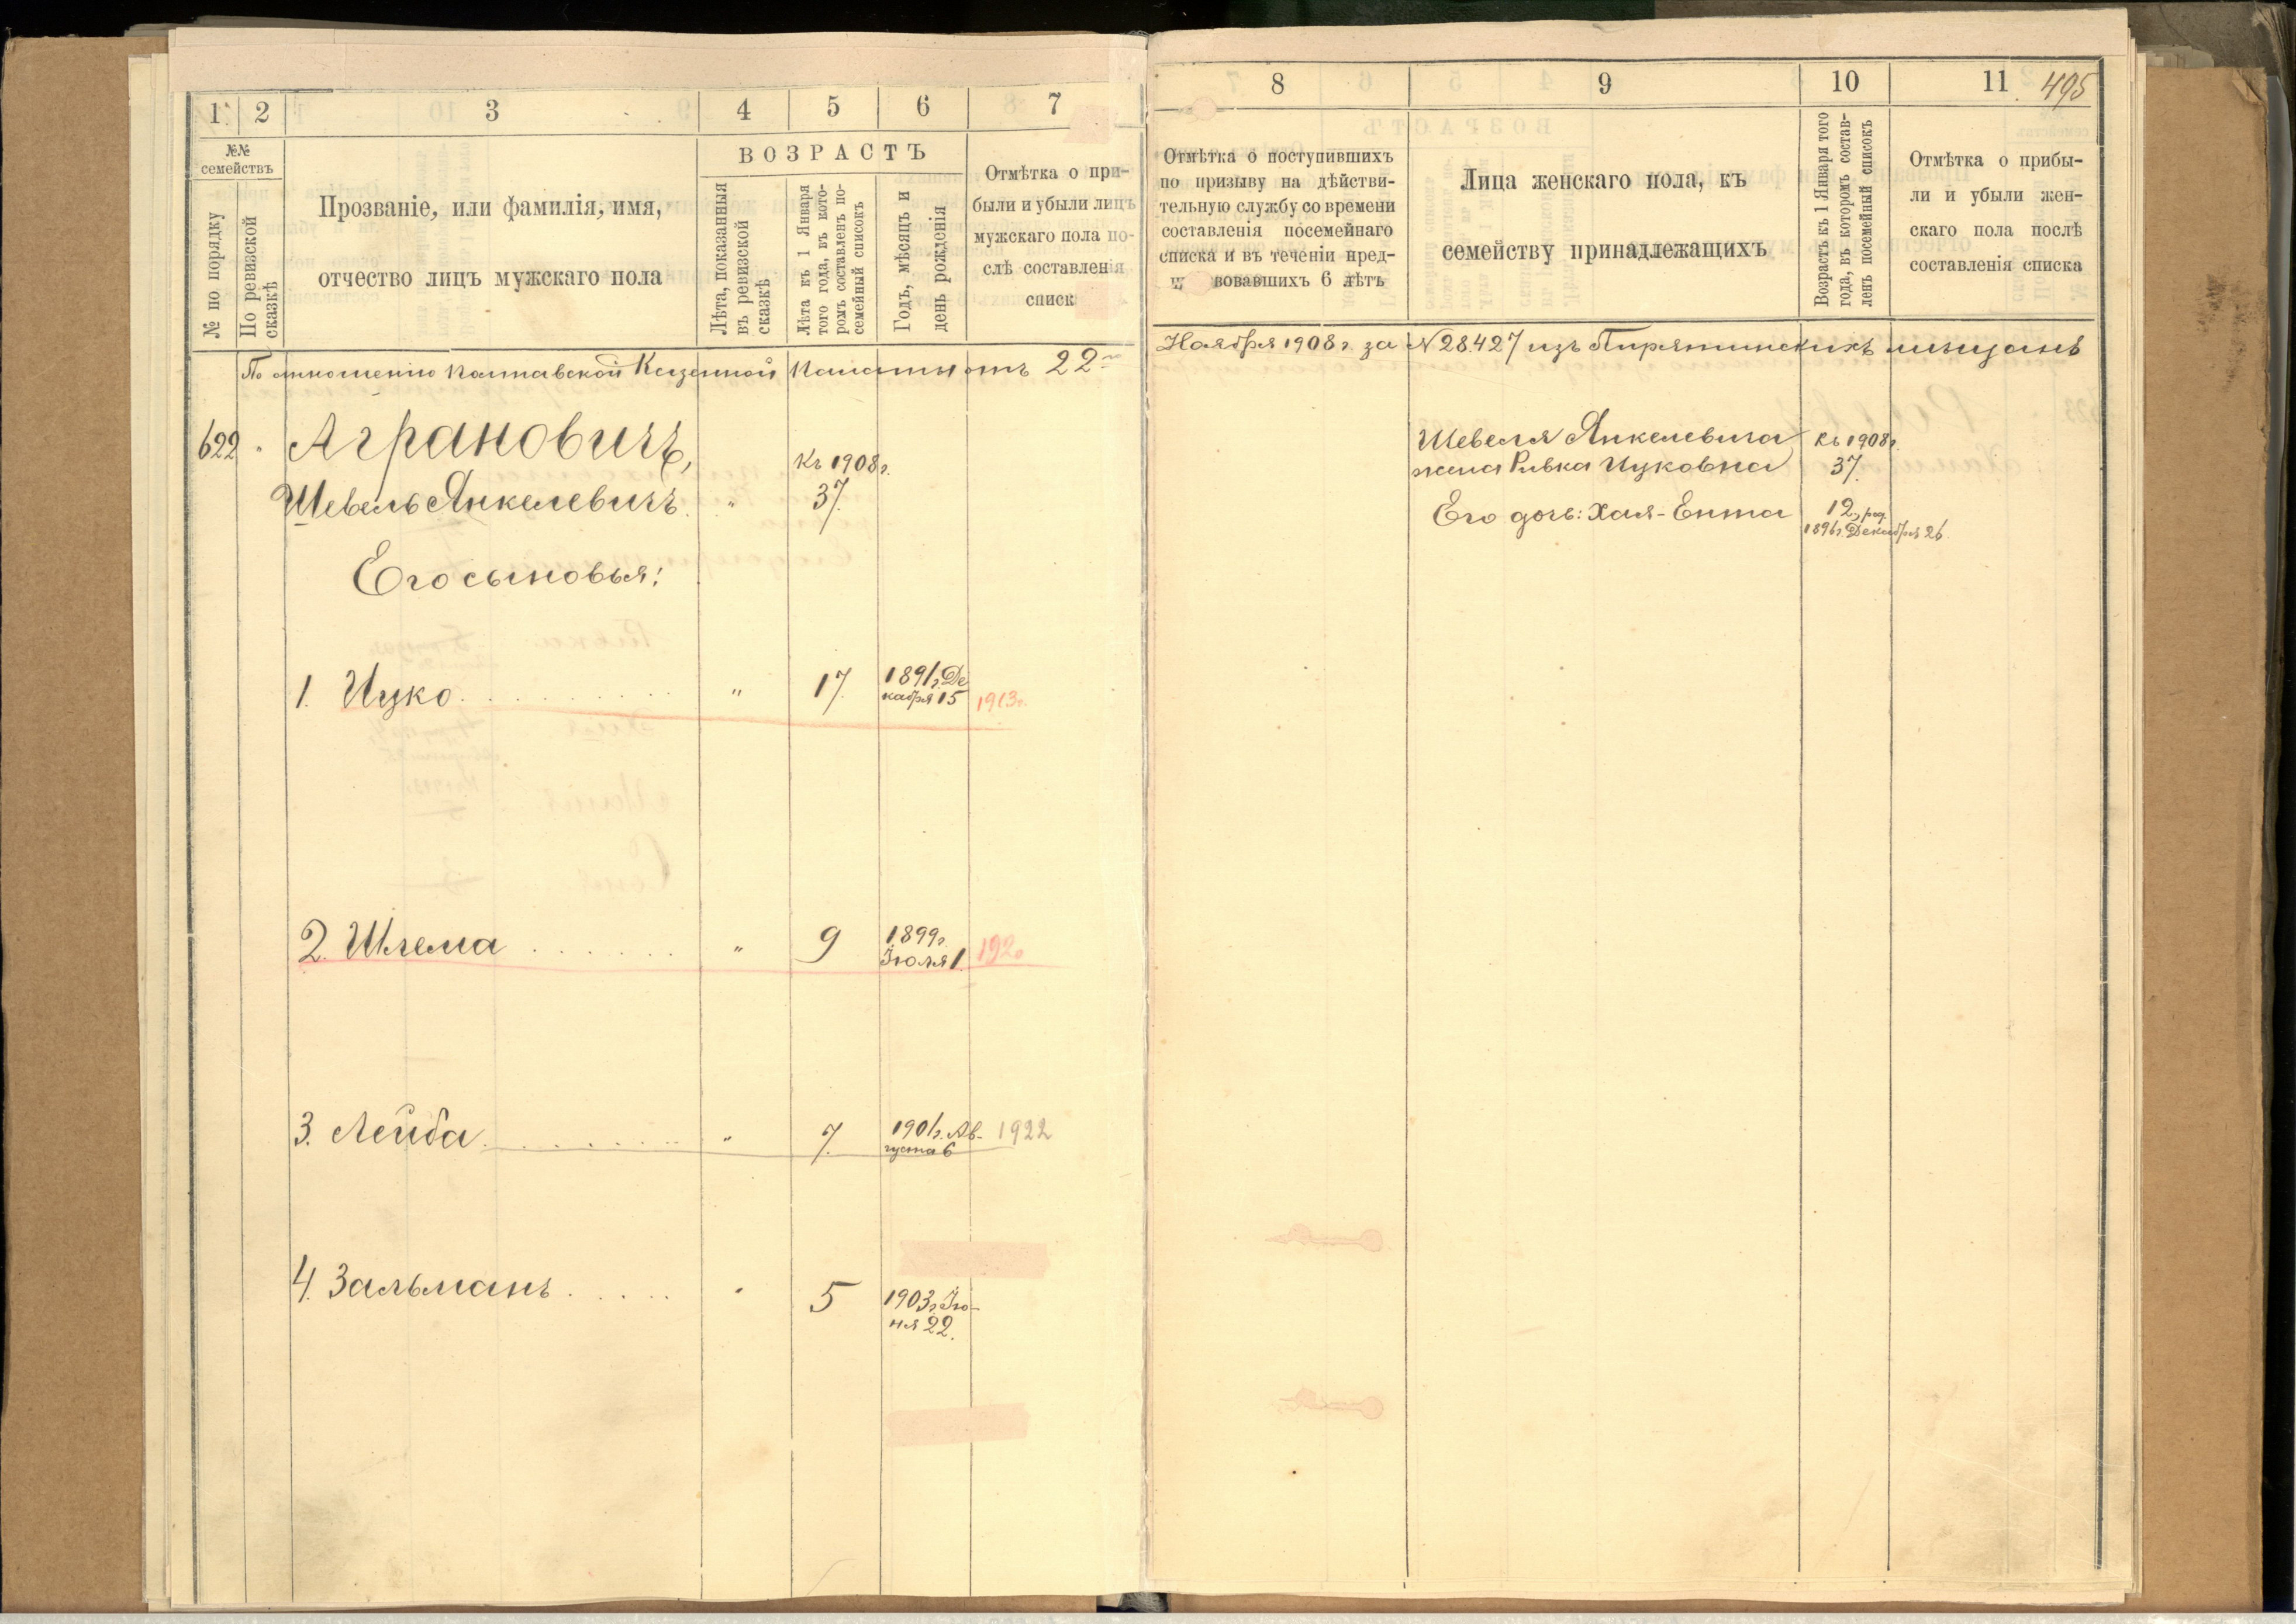 1
2
3
4
5
6
7
№№
семействъ
№ по порядку
По ревизской
сказкѣ
Прозваніе, или фамилія, имя,
отчество лицъ мужскаго пола
ВОЗРАСТЪ
Лѣта, показанныя
въ ревизской
сказкѣ
Лѣта къ 1 Января
того года, въ кото-
ромъ составленъ по-
семейный списокъ
Годъ, мѣсяцъ и
день рожденія
Отмѣтка о при-
были и убыли лицъ
мужскаго пола по-
слѣ составленія
списк
По отношенію Полтавской Казенной Палаты отъ 22го
622
Аграновичъ,
Шевель Янкелевичъ.
"
Къ 1908г.
37.
Его сыновья:
1. Ицко
"
17.
1891г. Де
кабря 15
1913г.
2. Шлема
"
9
1899г.
Іюля 1.
1920
3. Лейба
"
7.
1901г. Ав-
густа 6
1922
4. Зальманъ
"
5
1903г. Ію-
ня 22.
8
9
10
11
495
Отмѣтка о поступившихъ
по призыву на дѣйстви-
тельную службу со времени
составленія посемейнаго
списка и въ теченіи пред-
вовавшихъ 6 лѣтъ
Лица женскаго пола, къ
семейству принадлежащихъ
Возрастъ къ 1 Января того
года, въ которомъ состав-
ленъ посемейный списокъ
Отмѣтка о прибы-
ли и убыли жен-
скаго пола послѣ
составленія списка
Ноября 1908г. за №28427 изъ Пирятинскихъ мѣщанъ
Шевеля Янкелевича
жена Ривка Ицковна
Къ 1908г.
37.
Его дочь: Хая-Ента
12, род.
1896г. Декабря 26.